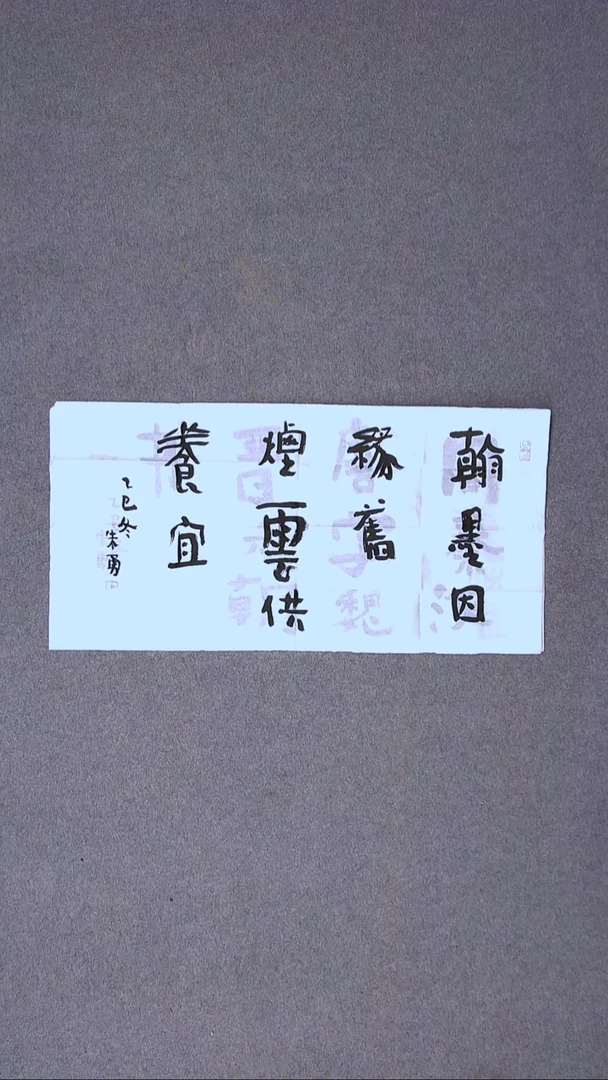 翰墨因
緣舊
煙雲供
養宜
乙巳冬
朱勇